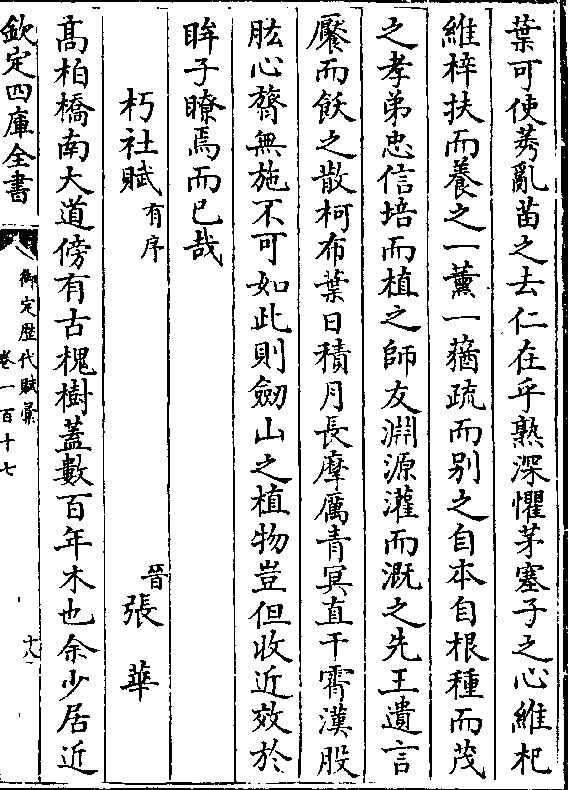 葉可使莠亂苗之去仁在乎熟深懼茅塞子之心維杞
維梓扶而養之一薰一蕕疏而别之自本自根種而茂
之孝弟忠信培而植之師友淵源灌而溉之先王遺言
饜而飫之散柯布葉日積月長摩厲青冥直干霄漢股
肱心膂無施不可如此則劒山之植物豈但收近效於
眸子瞭焉而已哉
朽社賦有序
晉張華
髙柏橋南大道傍有古槐樹葢數百年木也余少居近
欽定四庫全書
御定歴代賦彙
卷一百十七
十八